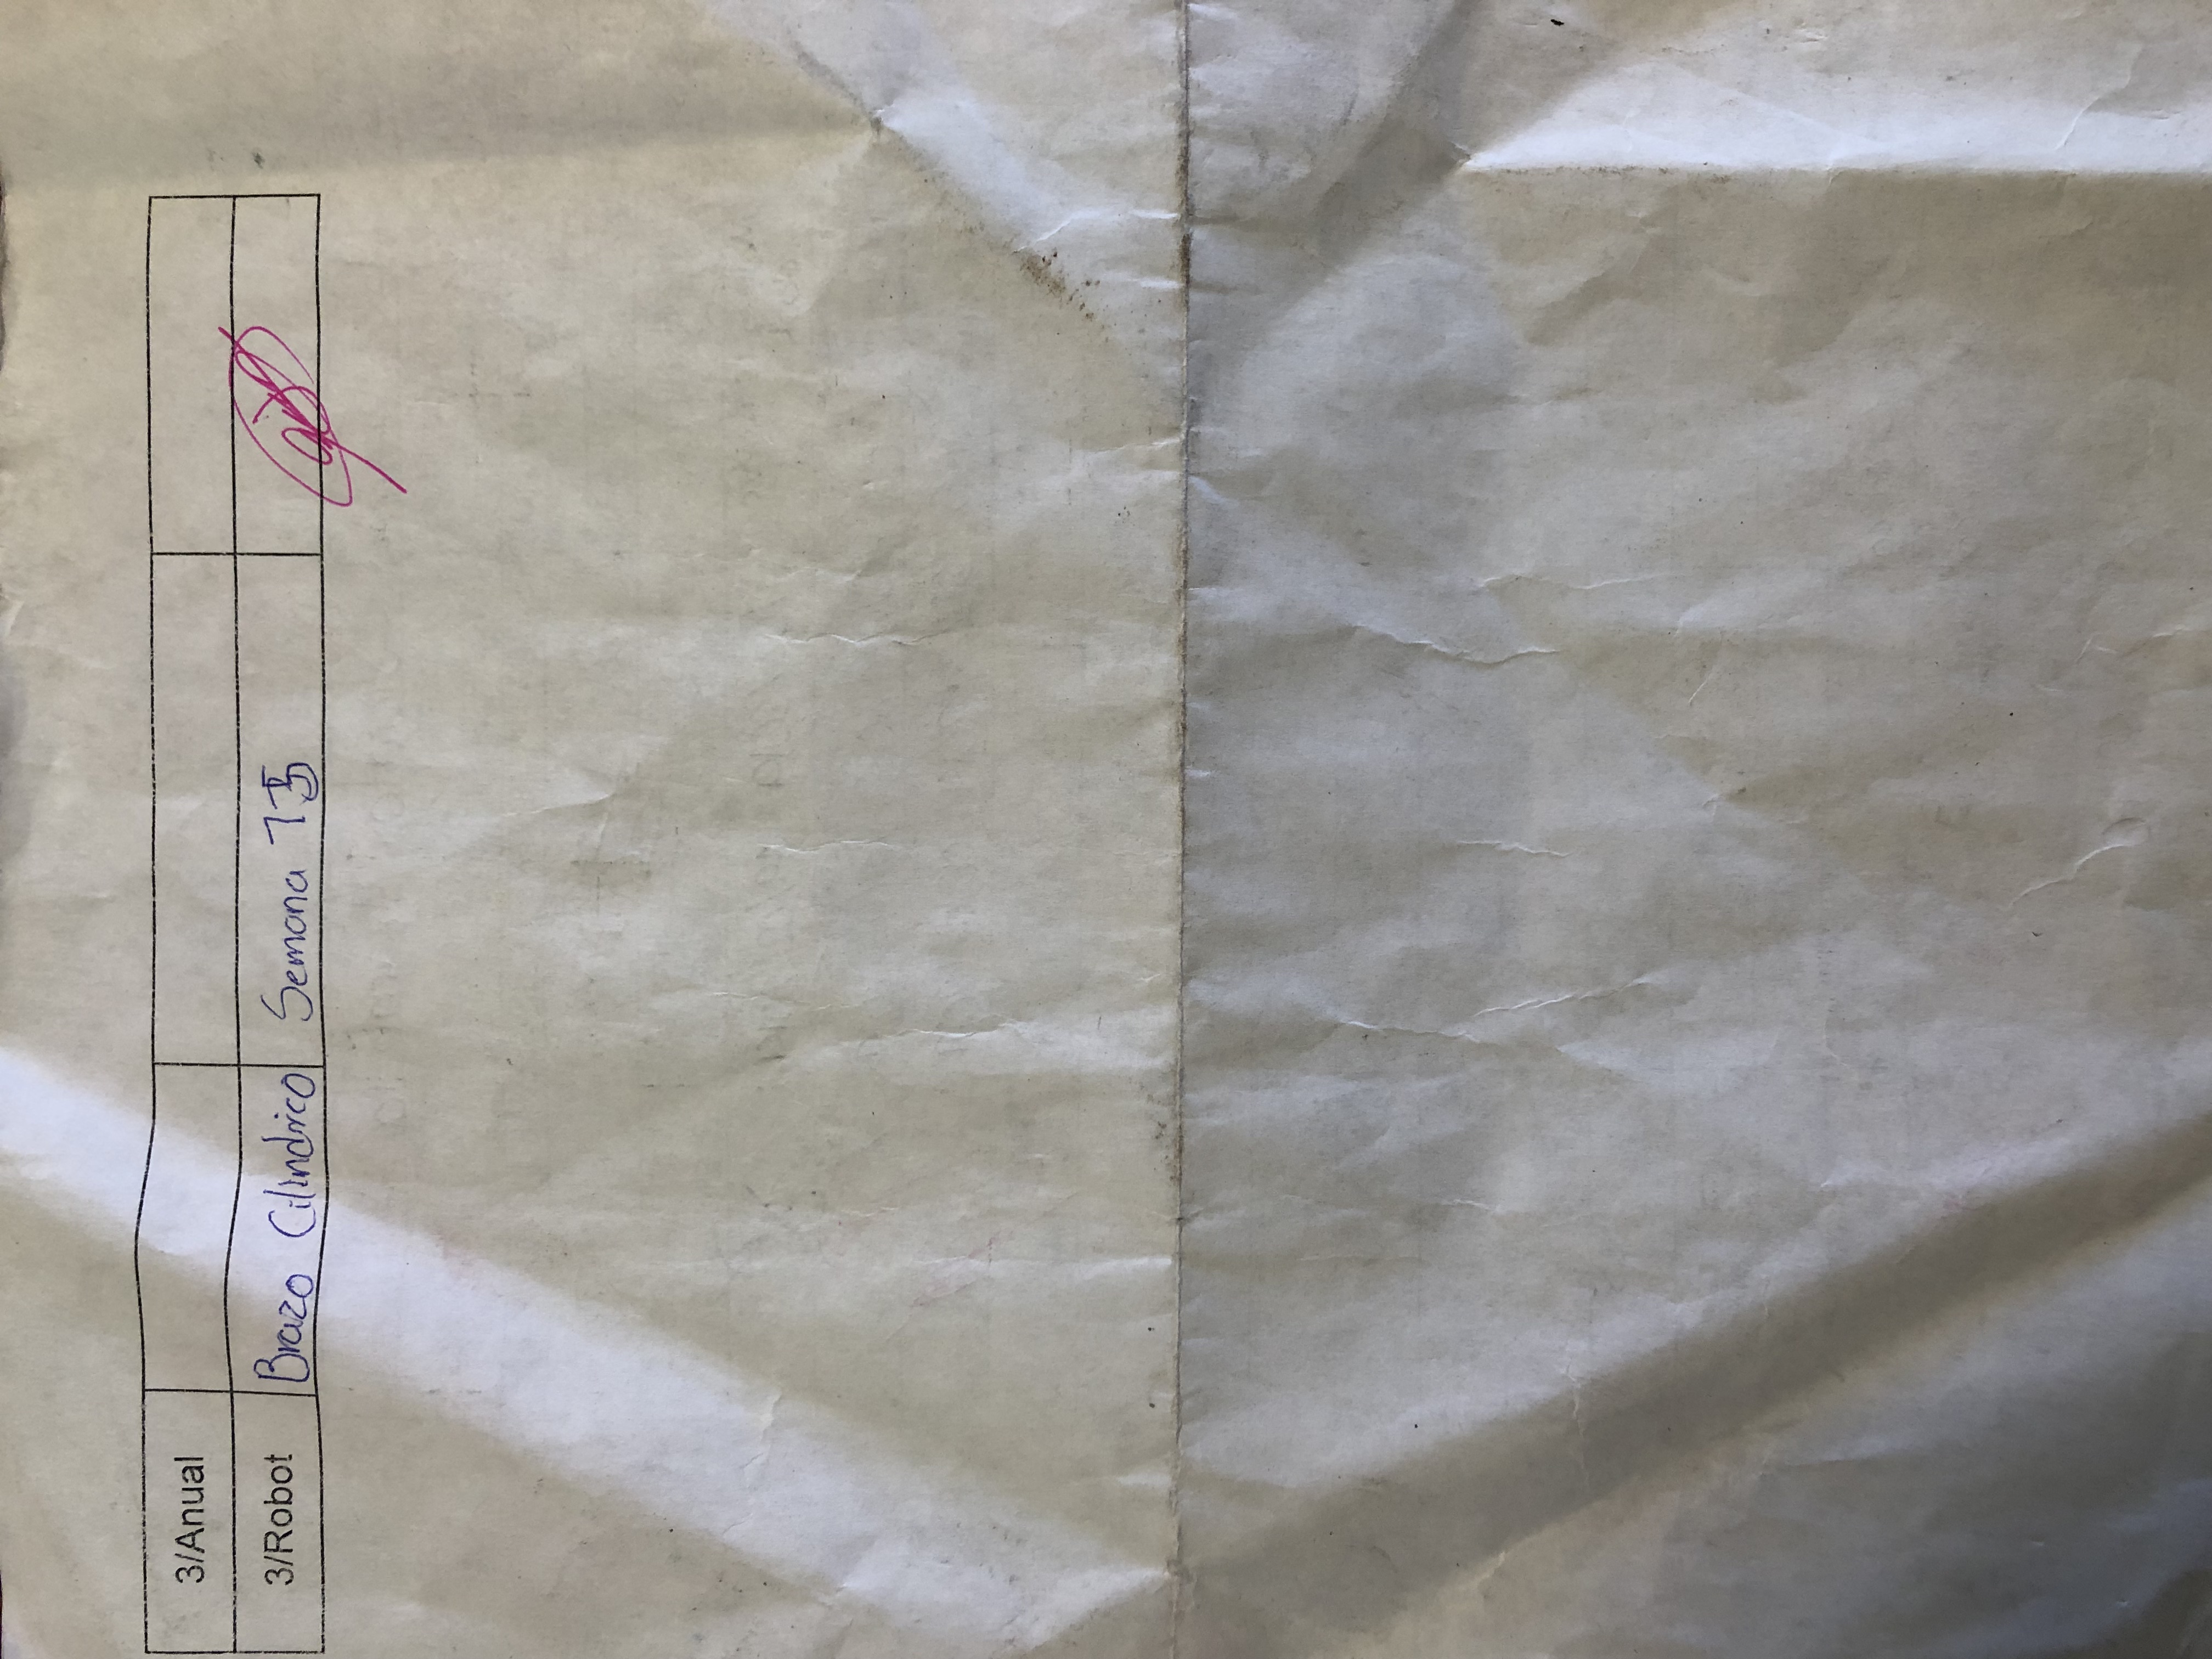 3/Anual
3/Robot Brazo Cilindrico Semana 15